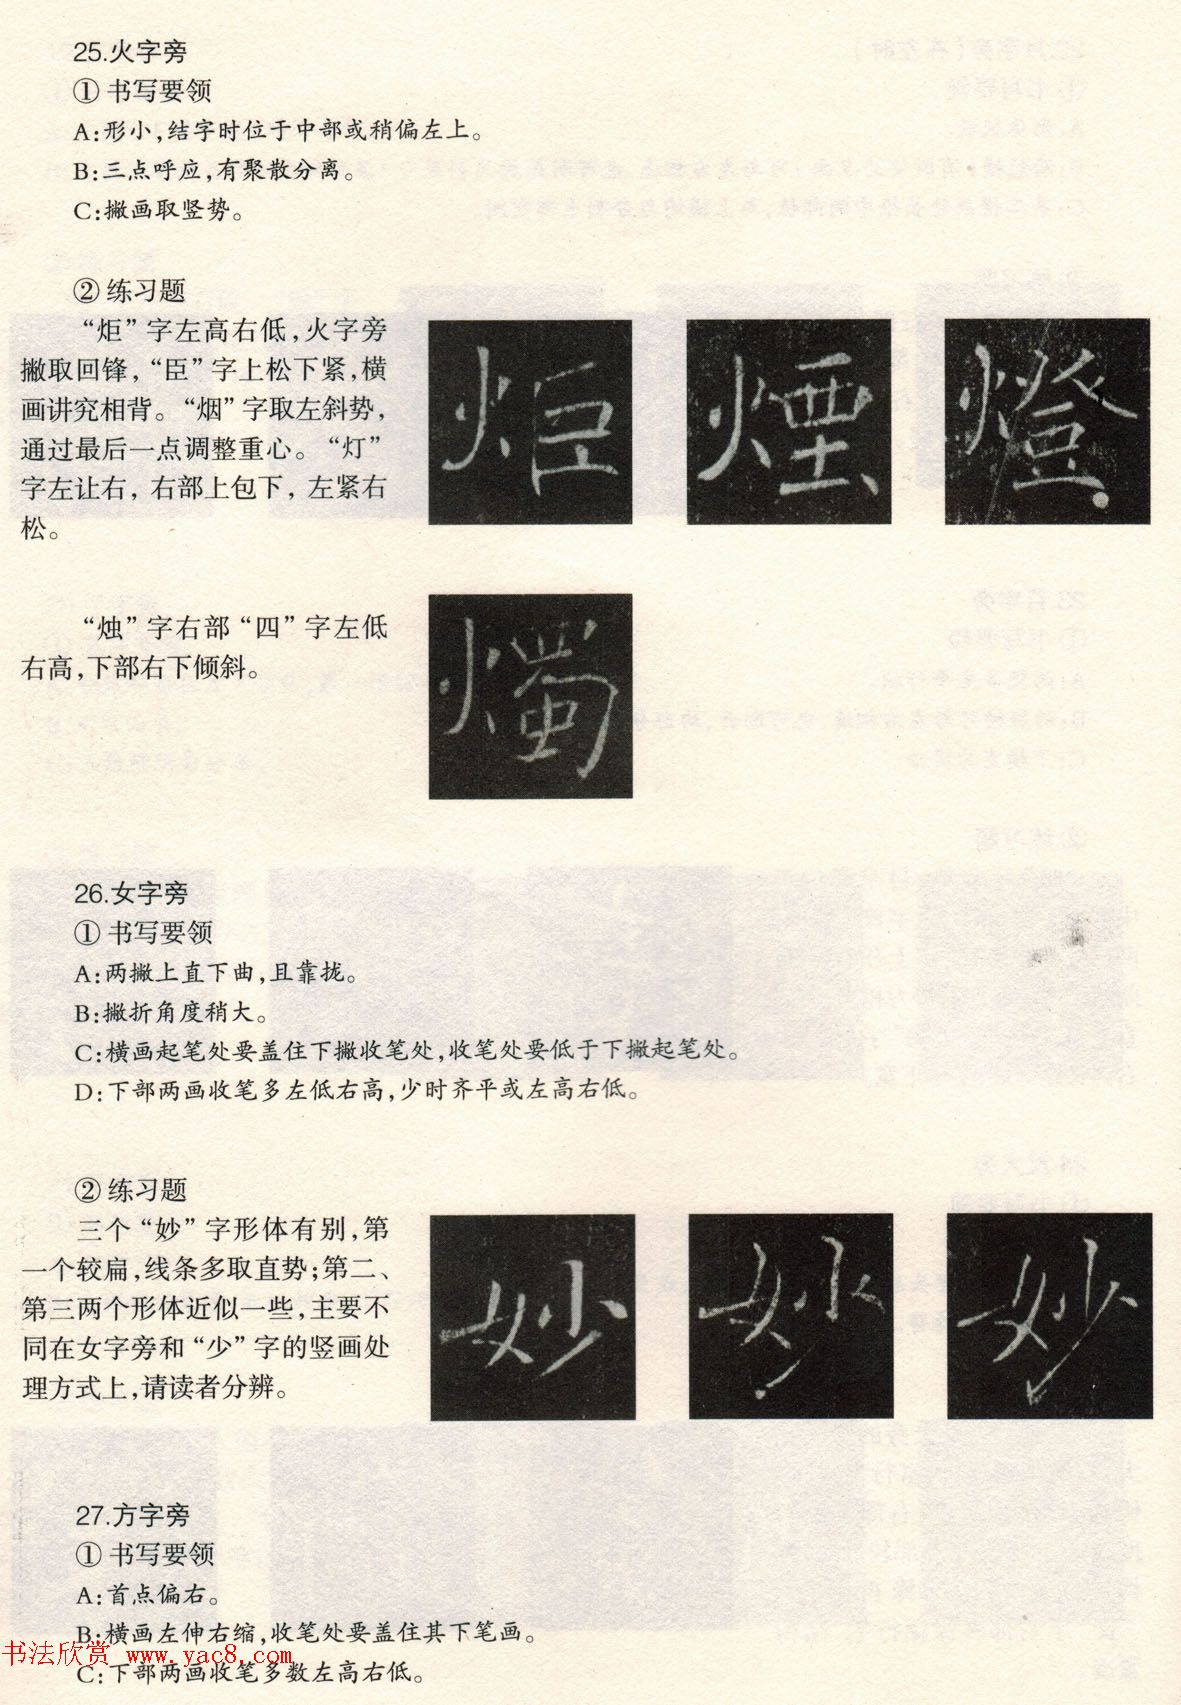 25.火字旁
① 书写要领
A:形小,结字时位于中部或稍偏左上。
B:三点呼应,有聚散分离。
C:撇画取竖势。
② 练习题
“炬”字左高右低,火字旁
撇取回锋,“臣”字上松下紧,横
画讲究相背。“烟”字取左斜势,
通过最后一点调整重心。“灯”
字左让右,右部上包下,左紧右
松。
炬 煙 燈
“烛”字右部“四”字左低
右高,下部右下倾斜。
燭
26.女字旁
① 书写要领
A:两撇上直下曲,且靠拢。
B:撇折角度稍大。
C:横画起笔处要盖住下撇收笔处,收笔处要低于下撇起笔处。
D:下部两画收笔多左低右高,少时齐平或左高右低。
② 练习题
三个“妙”字形体有别,第
一个较扁,线条多取直势;第二、
第三两个形体近似一些,主要不
同在女字旁和“少”字的竖画处
理方式上,请读者分辨。
妙 妙 妙
27.方字旁
① 书写要领
A:首点偏右。
B:横画左伸右缩,收笔处要盖住其下笔画。
书法欣赏 www.yac8.com
C:下部两画收笔多数左高右低。